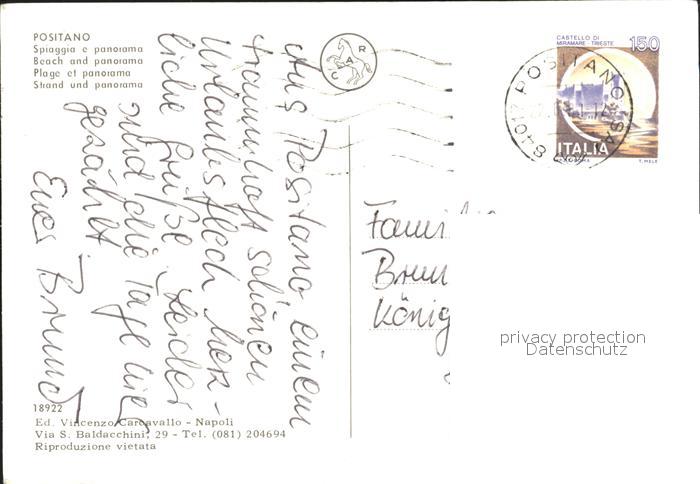 POSITANO
Spiaggia e panorama
Beach and panorama
Plage et panorama
Strand und panorama
CASTELLO DI
MIRAMARE - TRIESTE
150
ITALIA
T. MELE
84017 POSITANO (SA)
R
A
C
Aus Positano einem
traumhaft schönen
Urlaubsfleck herz-
liche Grüße. Leider
sind die Tage hier
gezählt.
Euer
Fami
Brun
König
privacy protection
Datenschutz
18922
Ed. Vincenzo Carcavallo - Napoli
Via S. Baldacchini, 29 - Tel. (081) 204694
Riproduzione vietata